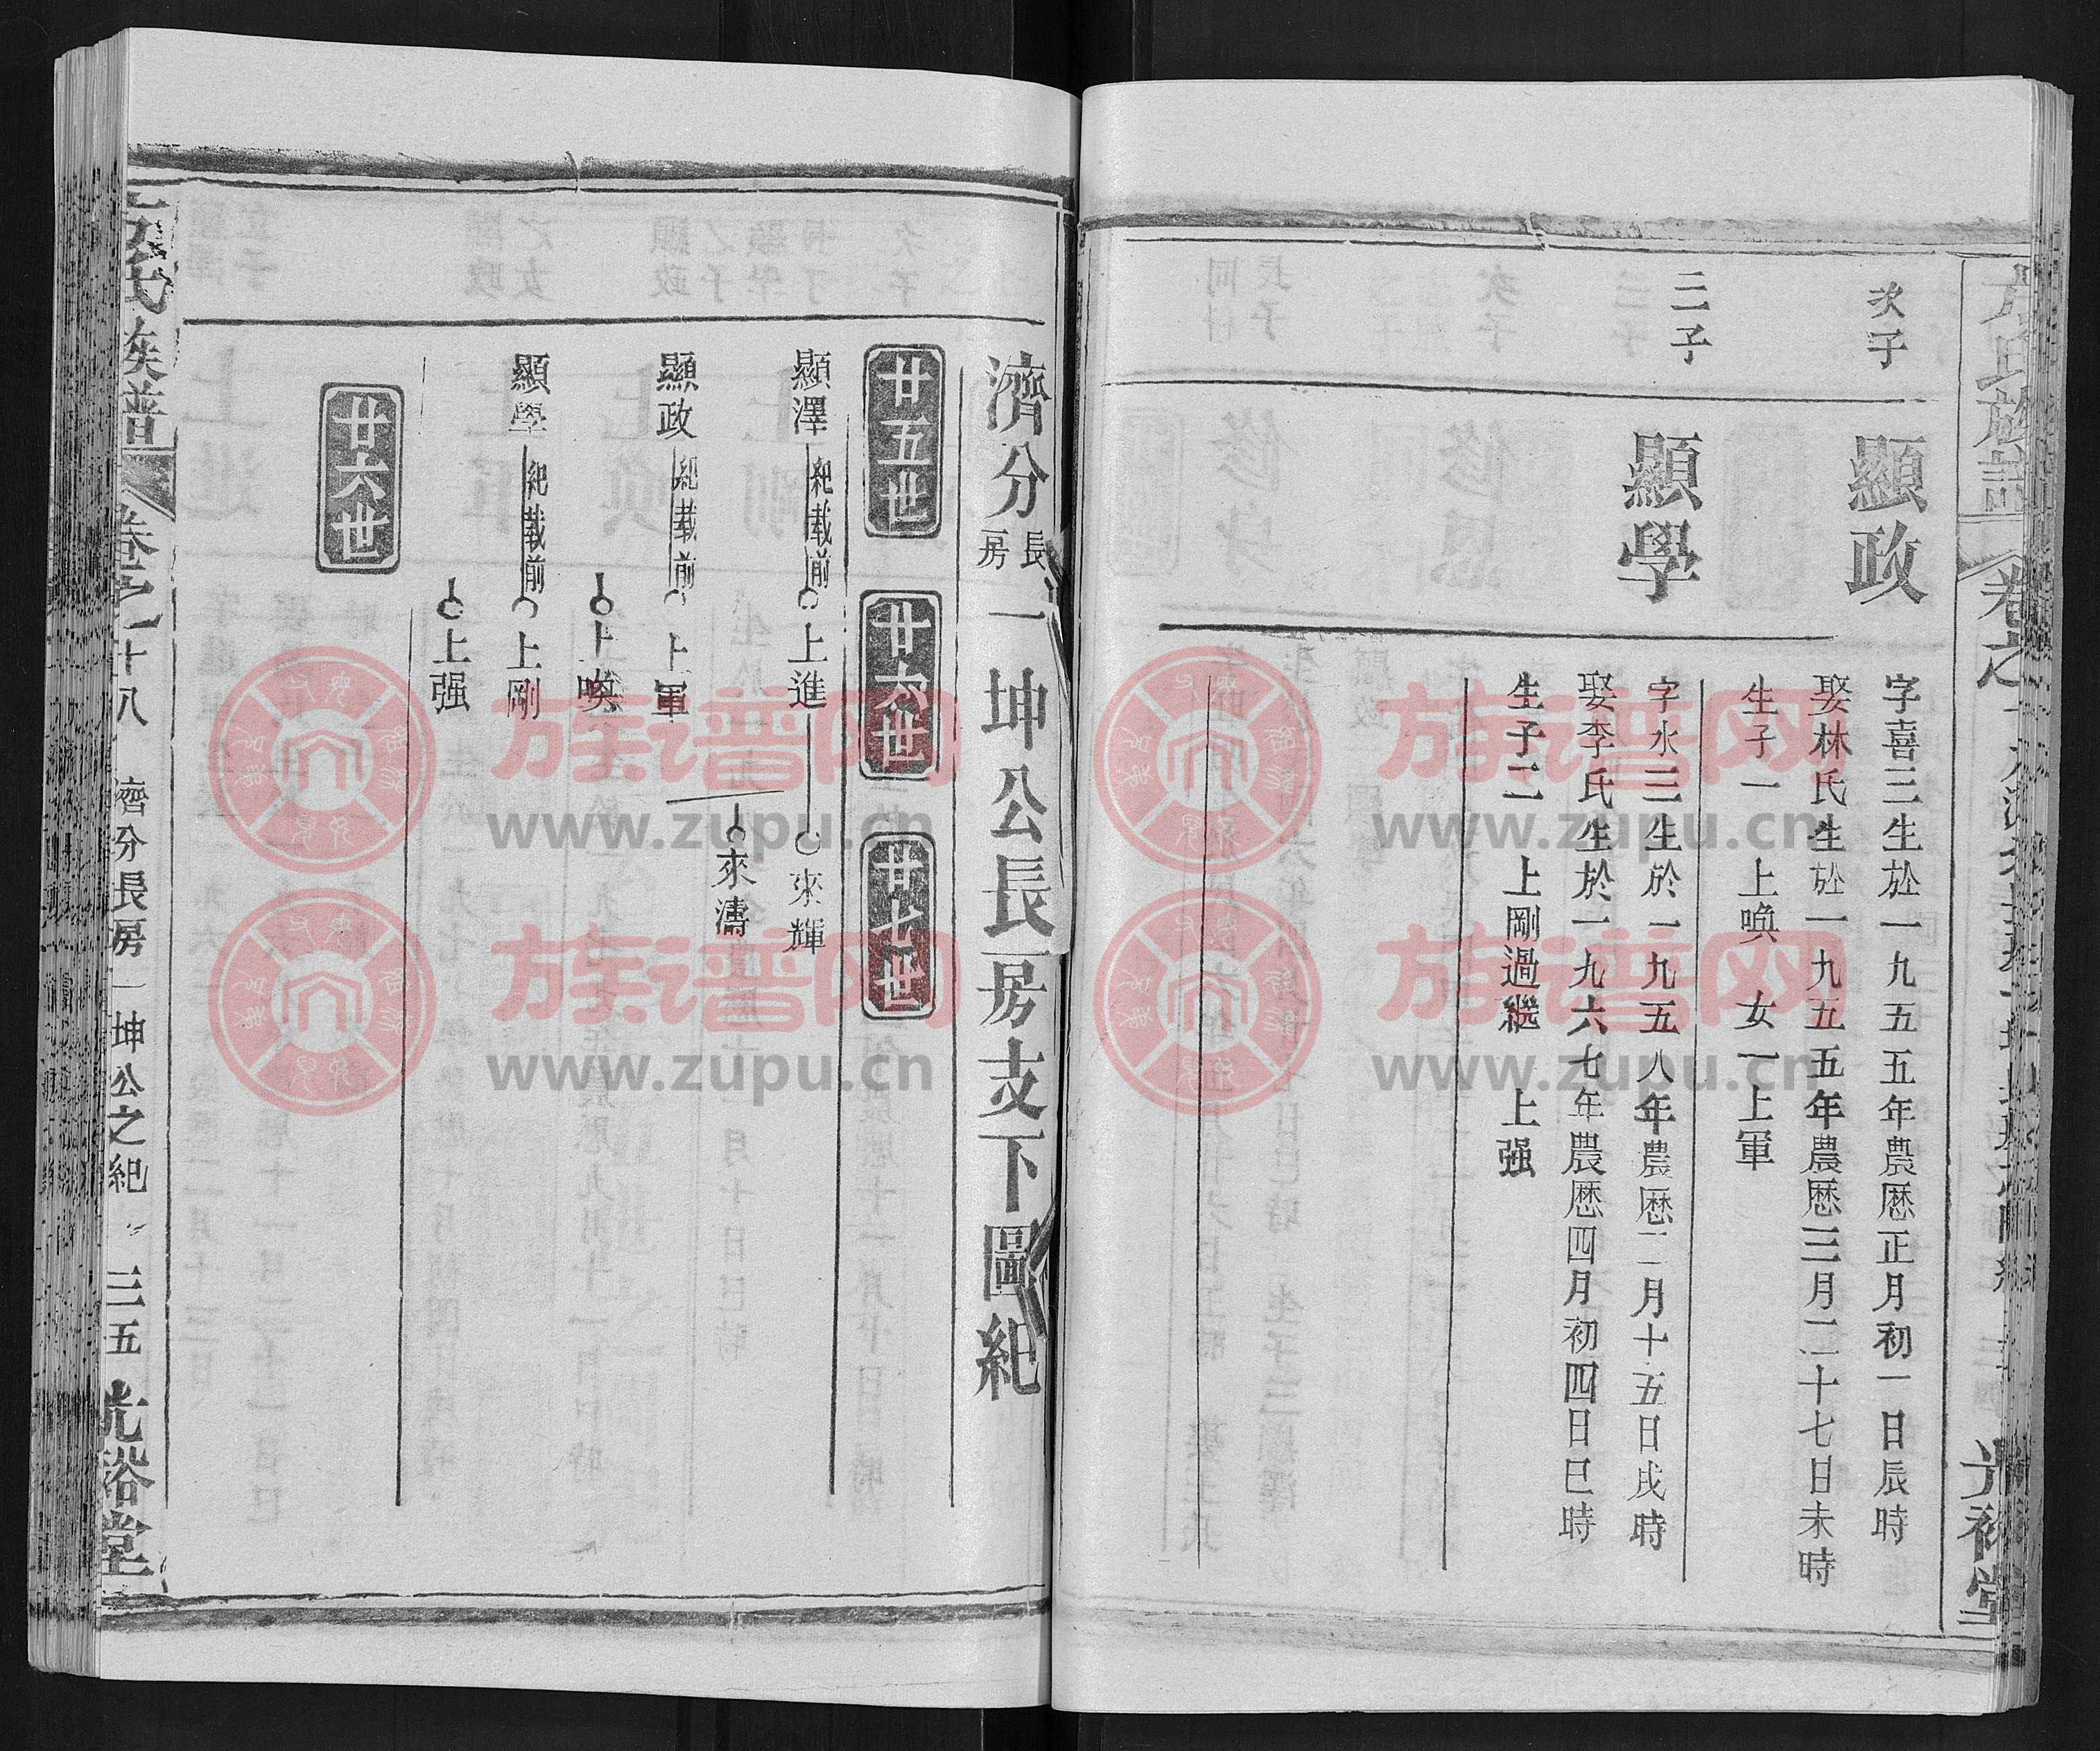 次子
顯政
字喜三生於一九五五年農曆正月初一日辰時
娶林氏生於一九五五年農曆三月二十七日未時
生子一　上喚　女一上軍
三子
顯學
字水三生於一九五八年農曆二月十五日戌時
娶李氏生於一九六七年農曆四月初四日巳時
生子二　上剛過繼　上强
光裕堂
濟分長房一坤公長房支下圖紀
廿五世　廿六世　廿七世
顯澤　紀載前　上進　來輝
來濤
顯政　紀載前　上軍
上喚
顯學　紀載前　上剛
上强
廿六世
氏族譜　卷之十八　濟分長房一坤公之紀　三五　光裕堂
族谱网
www.zupu.cn
族谱网
www.zupu.cn
族谱网
www.zupu.cn
族谱网
www.zupu.cn